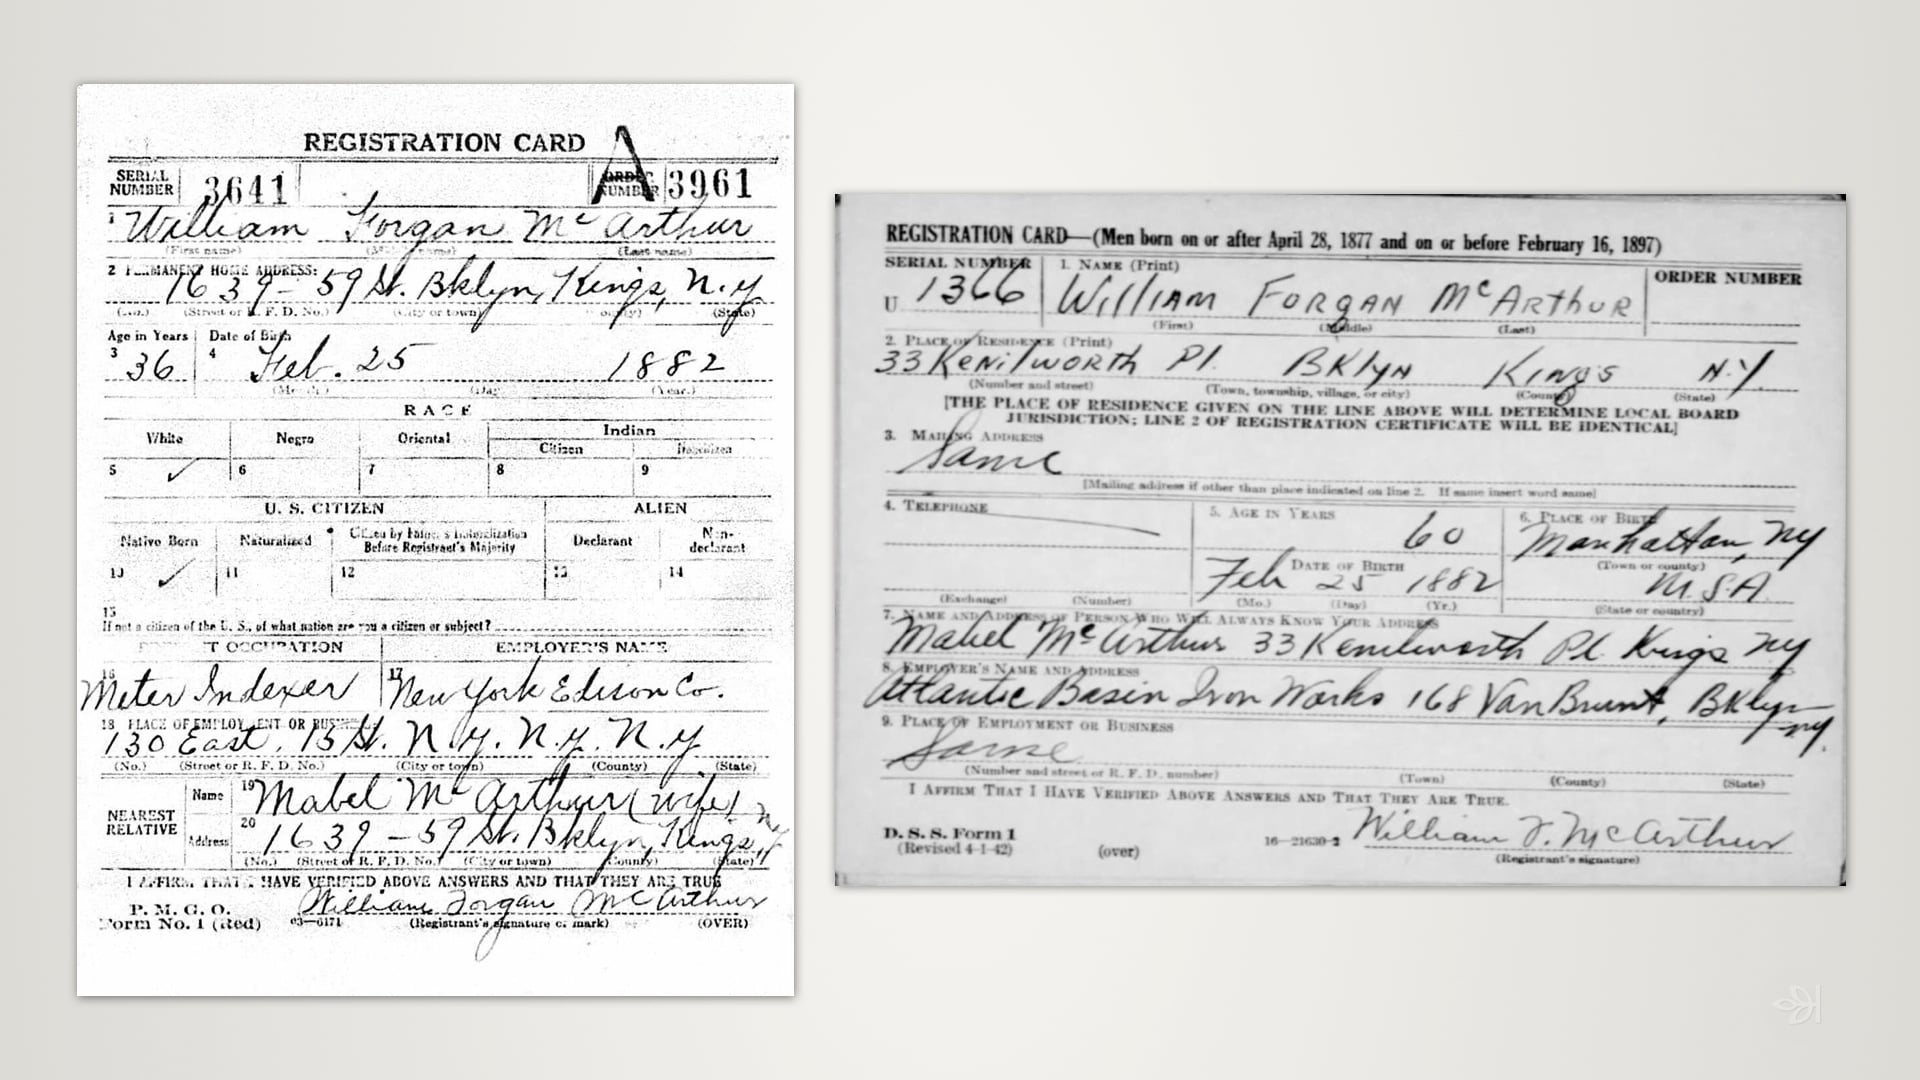 REGISTRATION CARD
A
SERIAL NUMBER 3641 ORDER NUMBER 3961
1 William Forgan McArthur
(First name) (Middle name) (Last name)
2 PERMANENT HOME ADDRESS:
1639 - 59 St. Bklyn, Kings, N.Y
(No.) (Street or R. F. D. No.) (City or town) (County) (State)
Age in Years Date of Birth
3 36 4 Feb. 25 1882
(Month.) (Day) (Year.)
RACE
White Negro Oriental Indian
Citizen Noncitizen
5 ✓ 6 7 8 9
U. S. CITIZEN ALIEN
Native Born Naturalized Citizen by Father's Naturalization Before Registrant's Majority Declarant Non-declarant
10 ✓ 11 12 13 14
15
If not a citizen of the U. S., of what nation are you a citizen or subject?
PRESENT OCCUPATION EMPLOYER'S NAME
16 Meter Indexer 17 New York Edison Co.
18 PLACE OF EMPLOYMENT OR BUSINESS
130 East. 15 St. N.Y. N.Y. N.Y
(No.) (Street or R. F. D. No.) (City or town) (County) (State)
NEAREST RELATIVE
Name 19 Mabel McArthur (wife)
Address 20 1639 - 59 St. Bklyn, Kings, N.Y
(No.) (Street or R. F. D. No.) (City or town) (County) (State)
I AFFIRM THAT I HAVE VERIFIED ABOVE ANSWERS AND THAT THEY ARE TRUE
P. M. G. O.
Form No. 1 (Red) 03—6171 William Forgan McArthur
(Registrant's signature or mark) (OVER)
REGISTRATION CARD—(Men born on or after April 28, 1877 and on or before February 16, 1897)
SERIAL NUMBER 1. NAME (Print) ORDER NUMBER
U 1366 William Forgan McArthur
(First) (Middle) (Last)
2. PLACE OF RESIDENCE (Print)
33 Kenilworth Pl. BKlyn Kings N.Y.
(Number and street) (Town, township, village, or city) (County) (State)
[THE PLACE OF RESIDENCE GIVEN ON THE LINE ABOVE WILL DETERMINE LOCAL BOARD
JURISDICTION; LINE 2 OF REGISTRATION CERTIFICATE WILL BE IDENTICAL]
3. MAILING ADDRESS
Same
[Mailing address if other than place indicated on line 2. If same insert word same]
4. TELEPHONE 5. AGE IN YEARS 6. PLACE OF BIRTH
60 Manhattan, NY
DATE OF BIRTH (Town or county)
Feb 25 1882 U.S.A.
(Exchange) (Number) (Mo.) (Day) (Yr.) (State or country)
7. NAME AND ADDRESS OF PERSON WHO WILL ALWAYS KNOW YOUR ADDRESS
Mabel McArthur 33 Kenilworth Pl. Kings NY
8. EMPLOYER'S NAME AND ADDRESS
Atlantic Basin Iron Works 168 Van Brunt, BKlyn NY.
9. PLACE OF EMPLOYMENT OR BUSINESS
Same
(Number and street or R. F. D. number) (Town) (County) (State)
I AFFIRM THAT I HAVE VERIFIED ABOVE ANSWERS AND THAT THEY ARE TRUE.
D. S. S. Form 1
(Revised 4-1-42) (over) 16—21630-2 William F. McArthur
(Registrant's signature)